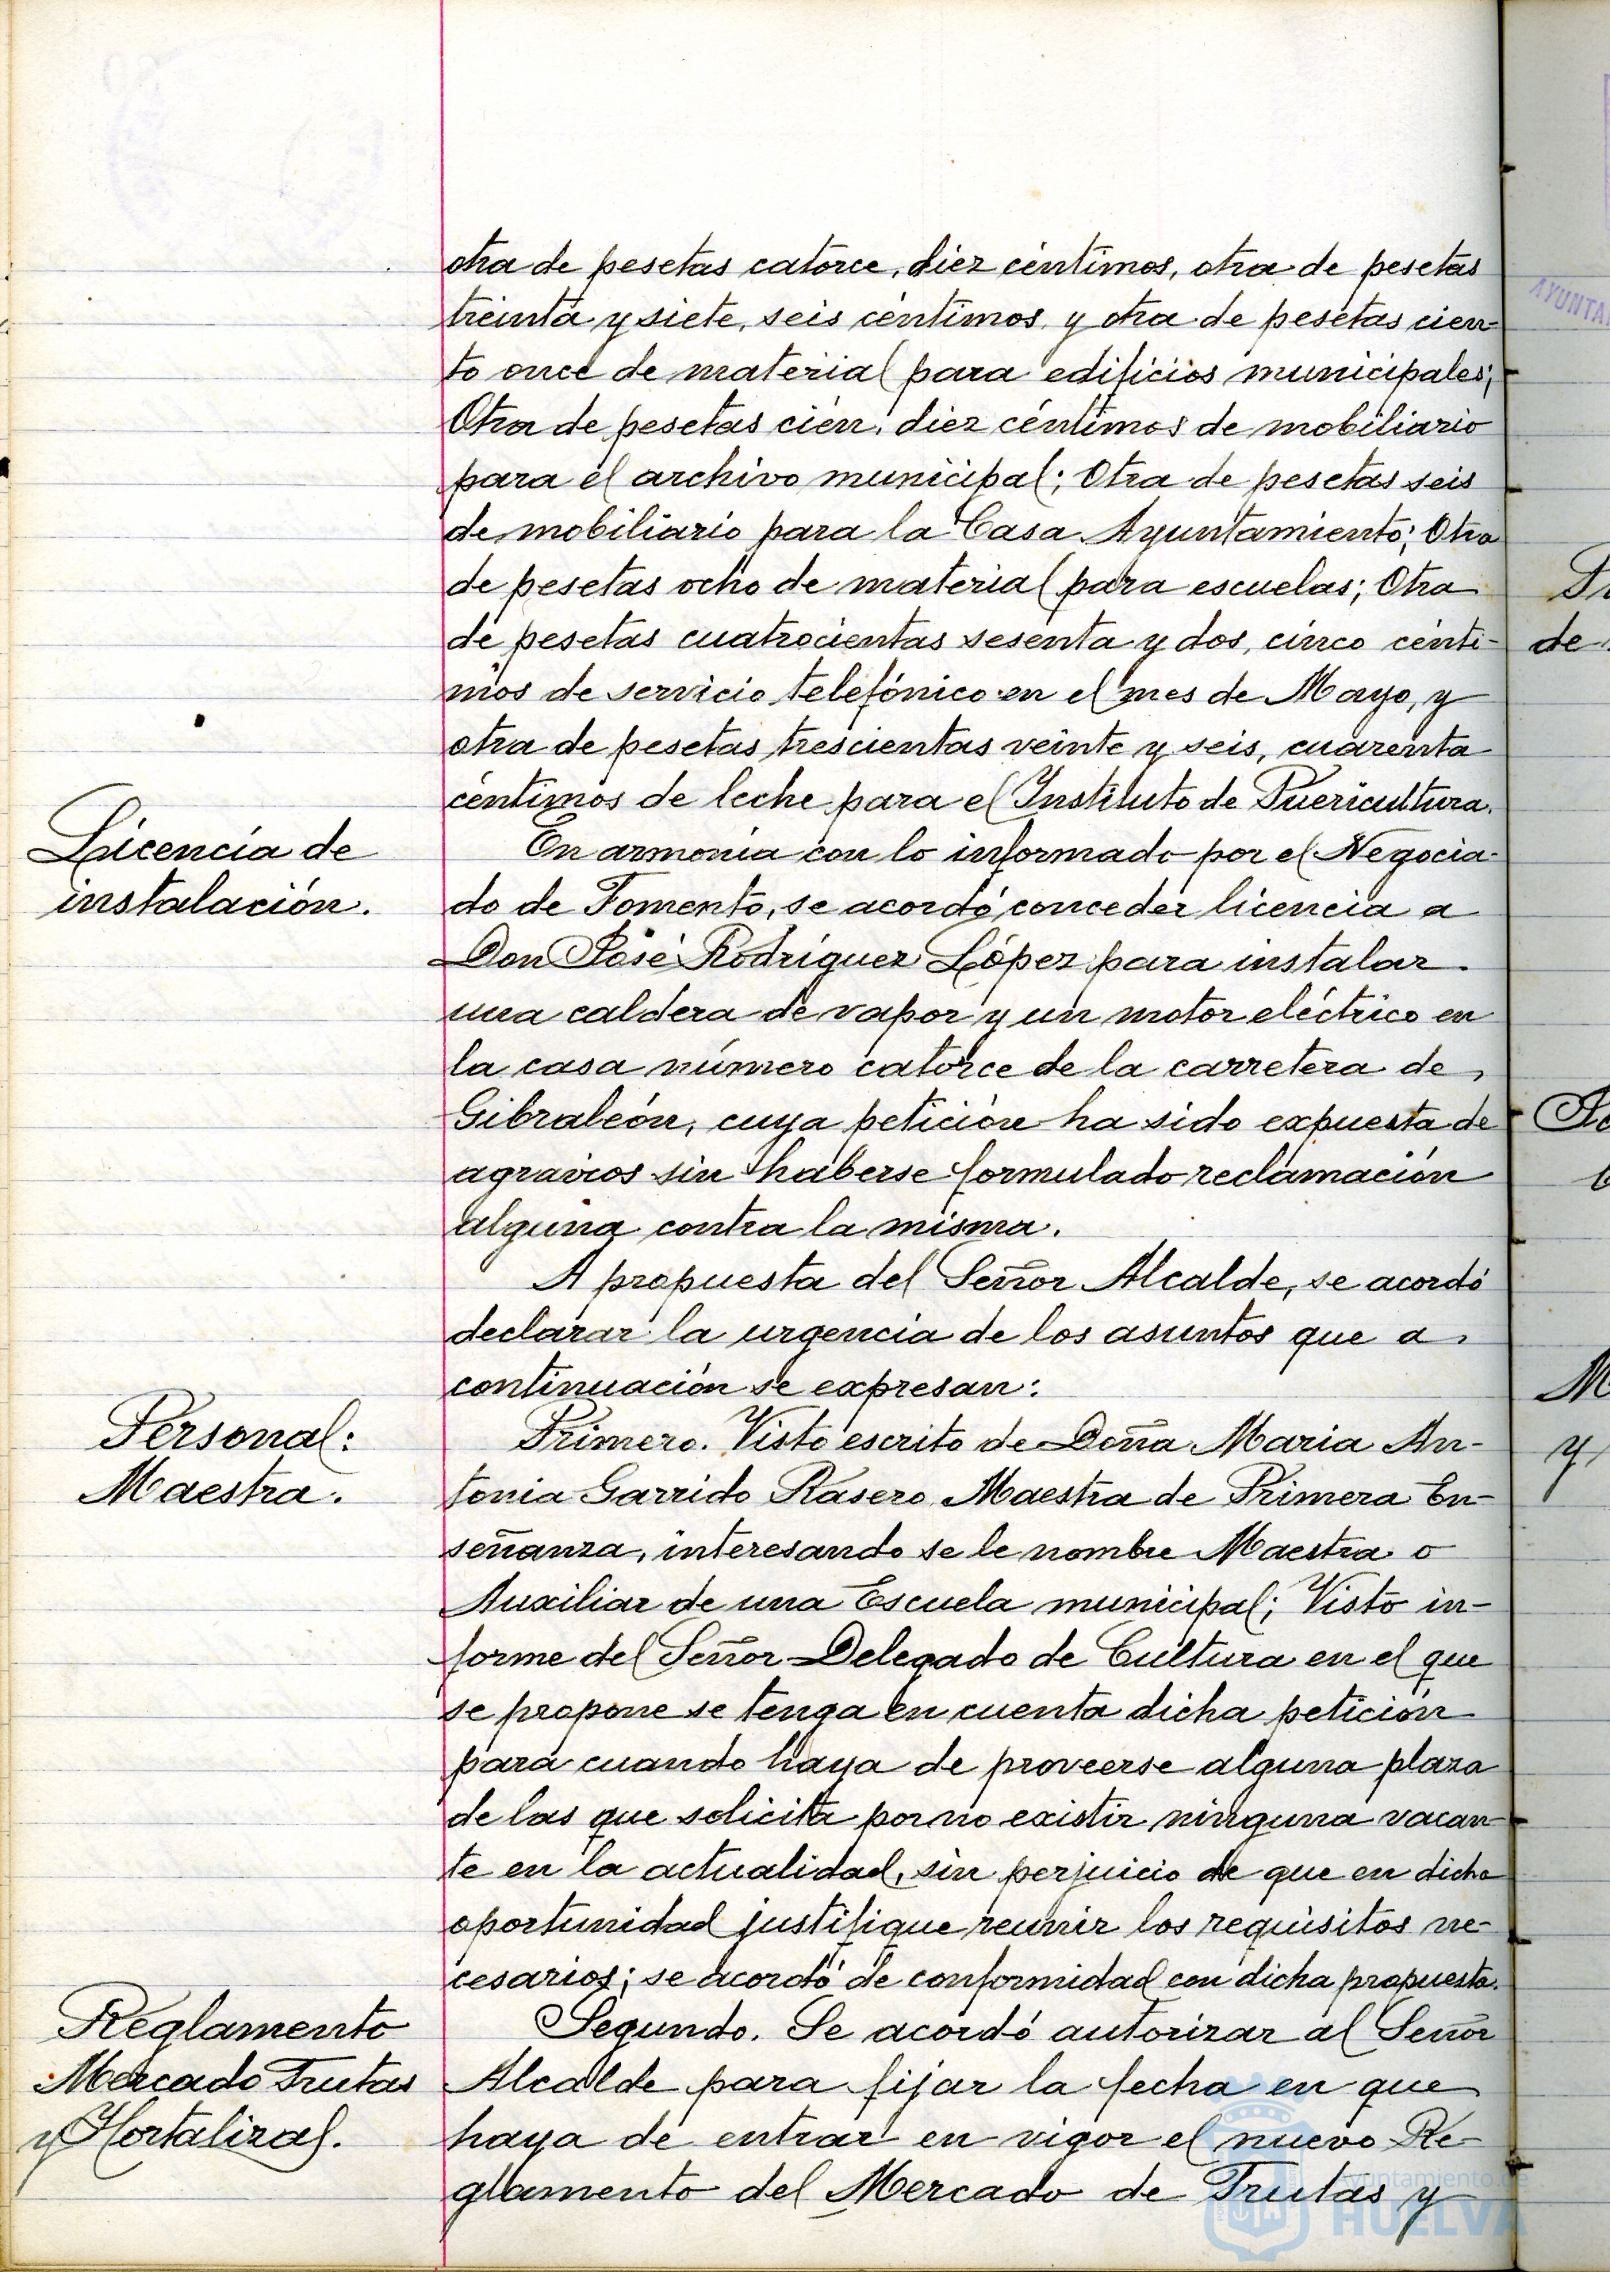 otra de pesetas catorce, diez céntimos, otra de pesetas
treinta y siete, seis céntimos, y otra de pesetas cien-
to once de material para edificios municipales;
Otra de pesetas cien, diez céntimos de mobiliario
para el archivo municipal; Otra de pesetas seis
de mobiliario para la Casa Ayuntamiento; Otra
de pesetas ocho de material para escuelas; Otra
de pesetas cuatrocientas sesenta y dos, cinco cénti-
mos de servicio telefónico en el mes de Mayo, y
otra de pesetas trescientas veinte y seis, cuarenta
céntimos de leche para el Instituto de Puericultura.
Licencia de
instalación.
En armonía con lo informado por el Negocia-
do de Fomento, se acordó conceder licencia a
Don José Rodríguez López para instalar
una caldera de vapor y un motor eléctrico en
la casa número catorce de la carretera de
Gibraleón, cuya petición ha sido expuesta de
agravios sin haberse formulado reclamación
alguna contra la misma.
A propuesta del Señor Alcalde, se acordó
declarar la urgencia de los asuntos que a
continuación se expresan:
Personal:
Maestra.
Primero. Visto escrito de Doña Maria An-
tonia Garrido Rasero Maestra de Primera En-
señanza, interesando se le nombre Maestra o
Auxiliar de una Escuela municipal; Visto in-
forme del Señor Delegado de Cultura en el que
se propone se tenga en cuenta dicha petición
para cuando haya de proveerse alguna plaza
de las que solicita por no existir ninguna vacan-
te en la actualidad, sin perjuicio de que en dicha
oportunidad justifique reunir los requisitos ne-
cesarios; se acordó de conformidad con dicha propuesta.
Reglamento
Mercado Frutas
y Hortalizas.
Segundo. Se acordó autorizar al Señor
Alcalde para fijar la fecha en que
haya de entrar en vigor el nuevo Re-
glamento del Mercado de Frutas y
Ayuntamiento de
HUELVA